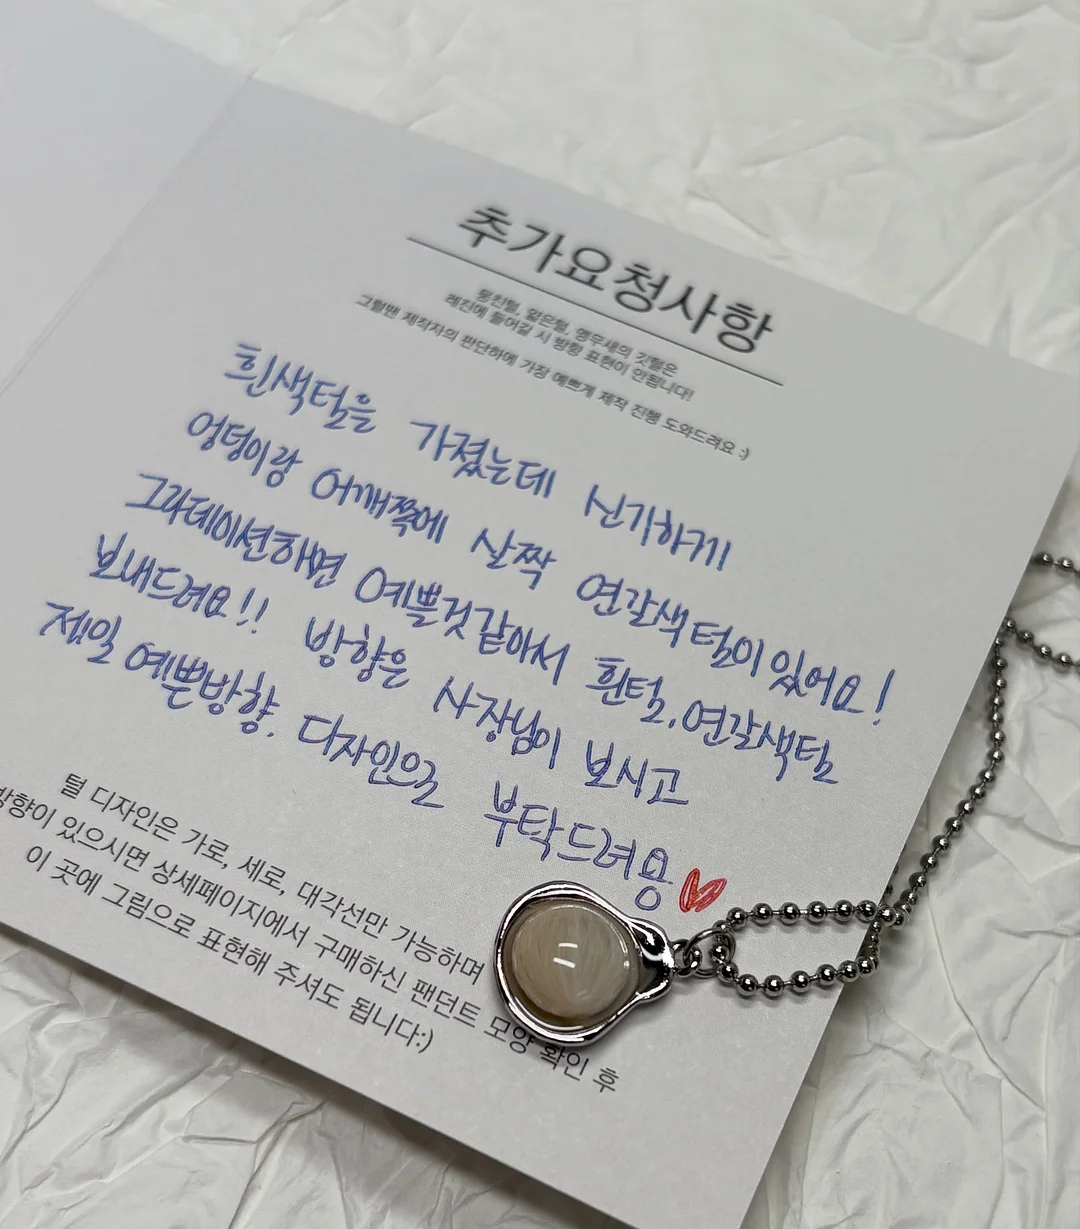 추가요청사항
뭉친털, 얇은털, 앵무새의 깃털은
레진에 들어갈 시 방향 표현이 안됩니다!
그럴땐 제작자의 판단하에 가장 예쁘게 제작 진행 도와드려요 :)
흰색털을 가졌는데 신기하게
엉덩이랑 어깨쪽에 살짝 연갈색 털이 있어요!
그라데이션하면 예쁠것같아서 흰털, 연갈색털
보내드려요!! 방향은 사장님이 보시고
제일 예쁜방향. 디자인으로 부탁드려용
털 디자인은 가로, 세로, 대각선만 가능하며
방향이 있으시면 상세페이지에서 구매하신 팬던트 모양 확인 후
이 곳에 그림으로 표현해 주셔도 됩니다:)